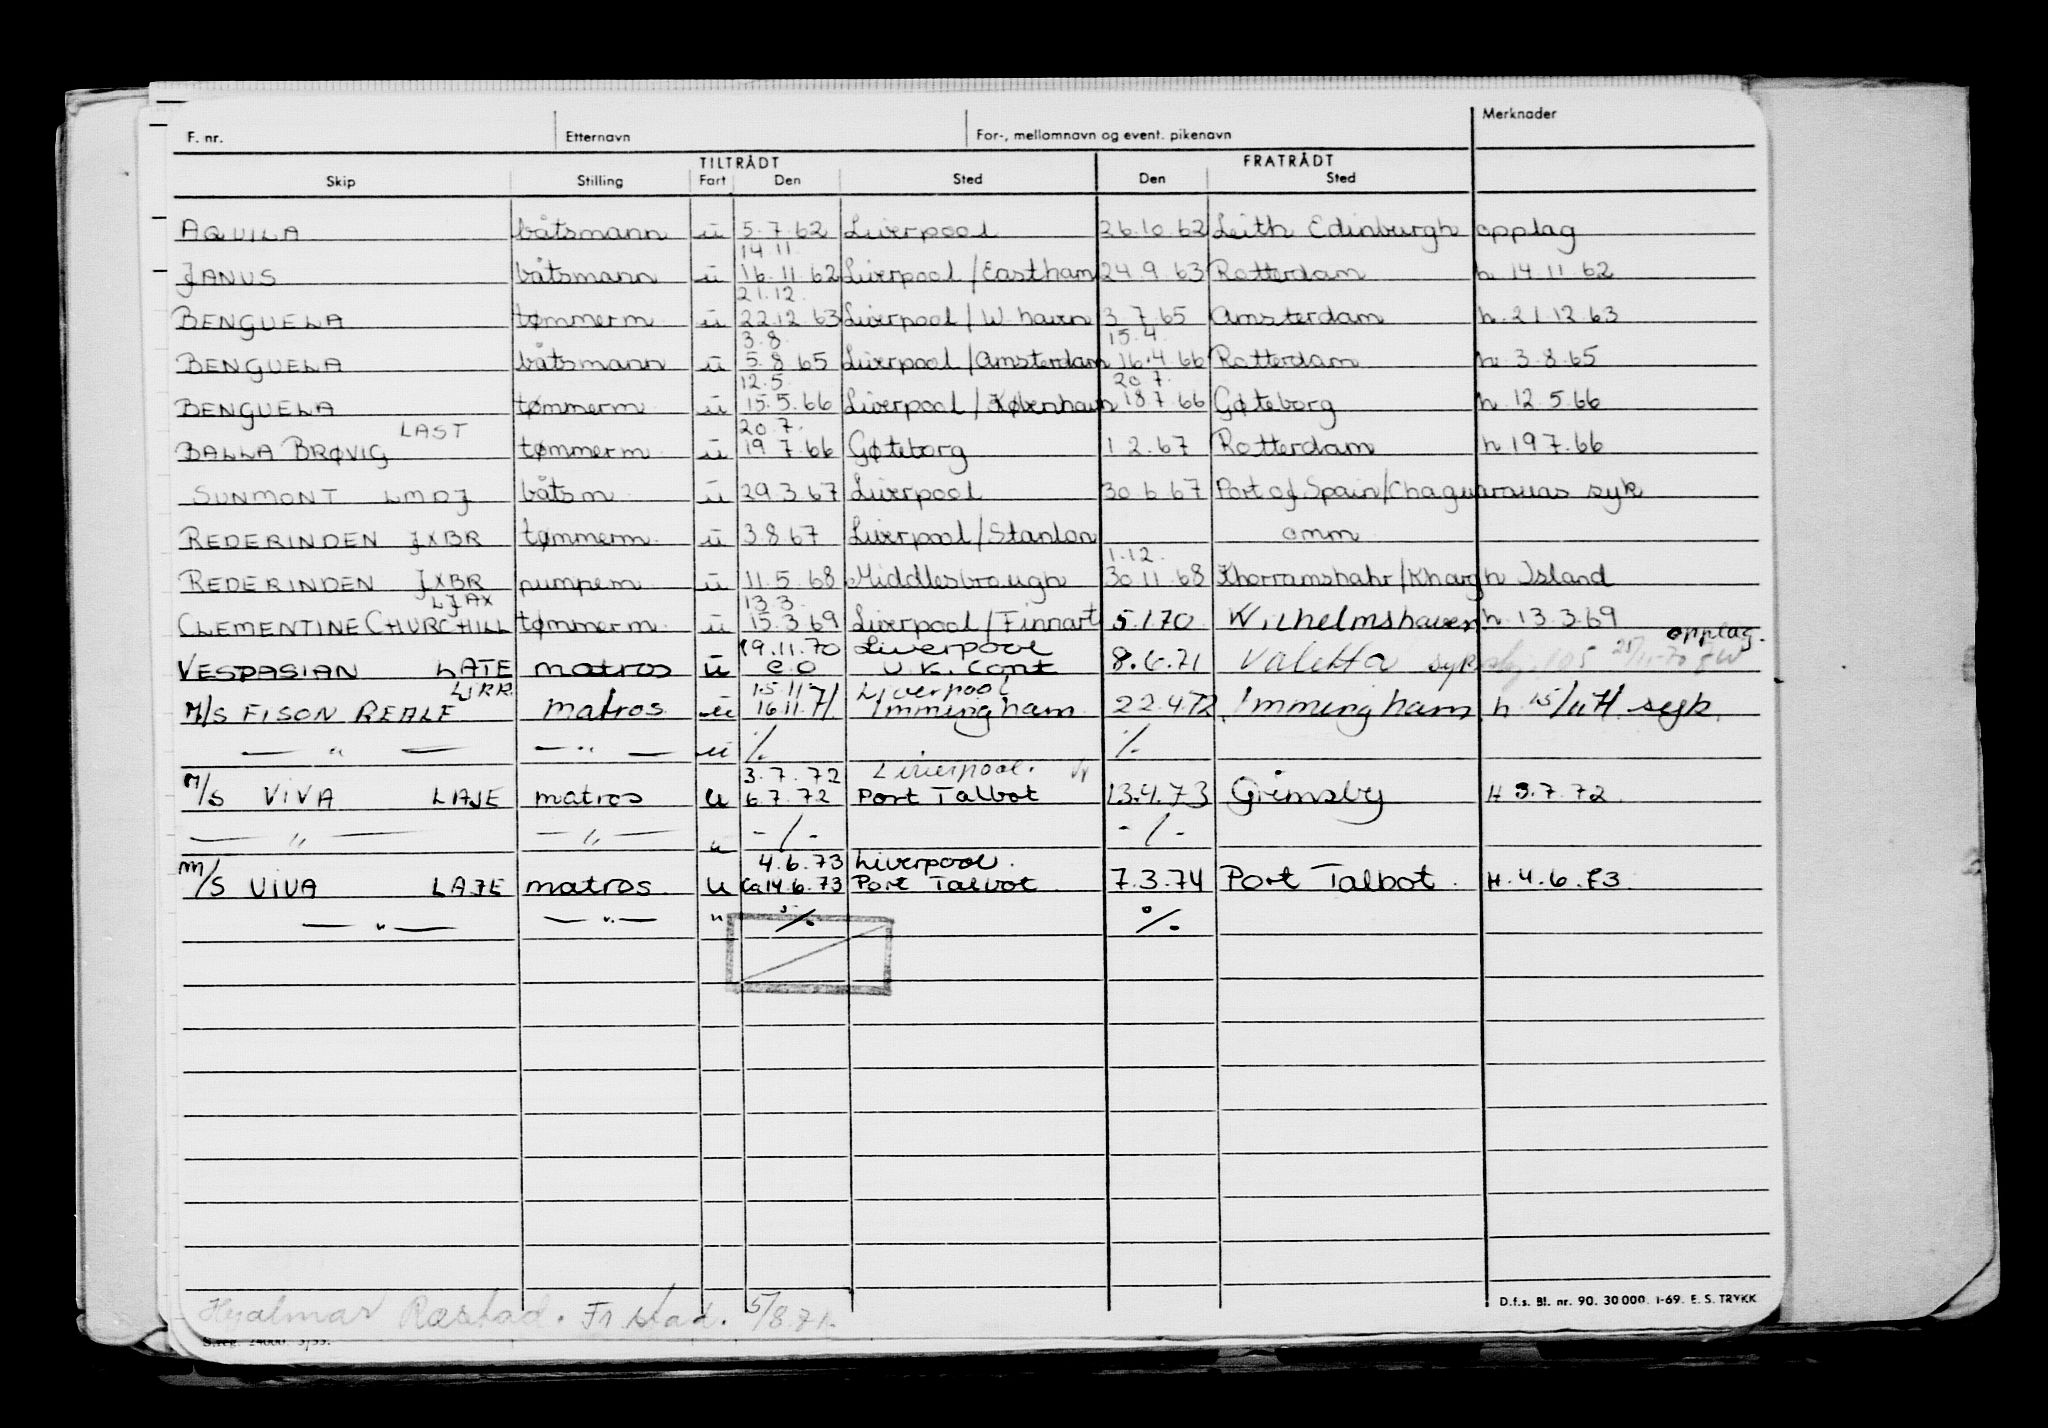 F. nr. Etternavn For-, mellomnavn og event. pikenavn Merknader
TILTRÅDT FRATRÅDT
Skip Stilling Fart Den Sted Den Sted
AQUILA båtsmann u 5.7.62 Liverpool 26.10.62 Leith Edinburgh opplag
14.11
JANUS båtsmann u 16.11.62 Liverpool/Eastham 24.9.63 Rotterdam h 14.11.62
21.12.
BENGUELA tømmerm u 22.12.63 Liverpool/W.haven 3.7.65 Amsterdam h. 21.12.63
3.8. 15.4.
BENGUELA båtsmann u 5.8.65 Liverpool/Amsterdam 16.4.66 Rotterdam h. 3.8.65
12.5. 20.7.
BENGUELA tømmerm u 15.5.66 Liverpool/København 18.7.66 Gøteborg h. 12.5.66
LAST 20.7.
BALLA BRØVIG tømmerm u 19.7.66 Gøteborg 1.2.67 Rotterdam h. 19.7.66
SUNMONT LMDJ båtsm u 29.3.67 Liverpool 30.6.67 Port of Spain/Chaguaramas syk
REDERINDEN JXBR tømmerm. u 3.8.67 Liverpool/Stanlon omm
1.12.
REDERINDEN JXBR pumpem u 11.5.68 Middlesbrough 30.11.68 Khorramshahr/Khargh Island
LJAX 13.3.
CLEMENTINE CHURCHILL tømmerm. u 15.3.69 Liverpool/Finnart 5.1.70 Wilhelmshaven h. 13.3.69
19.11.70 Liverpool opplag.
VESPASIAN LATE matros u co U.K. Cont 8.6.71 Valetta
LJRR 15.11 Liverpool
M/S FISON REALF matros u 16.11.71. Immingham 22.4.72 Immingham h 15/11 71. syk.
— " — — " — u % %
3.7.72 Liverpool.
M/S VIVA LAJE matros u 6.7.72 Port Talbot 13.4.73 Grimsby H 3.7.72
— " — — " — " -/- -/-
4.6.73 Liverpool.
M/S VIVA LAJE matros u ca 14.6.73 Port Talbot 7.3.74 Port Talbot. H. 4.6.73.
— " — — " — " % %
D.f.s. Bl. nr. 90. 30 000. 1-69. E. S. TRYKK
Hjalmar Rastad. Fr.stad. 5/8.71.